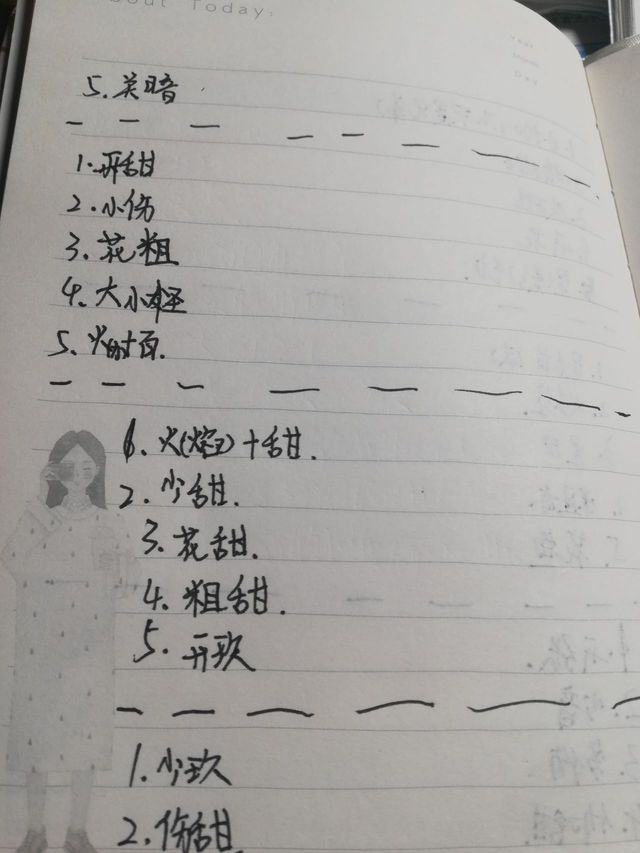 About Today:
Year
Day
5. 关暗
1. 开甜
2. 小伤
3. 花粗
4. 大小怪
5. 火时百.
6. 火(焰)十甜.
2. 少甜.
3. 花甜.
4. 粗甜.
5. 开玖
1. 少玖
2. 伤甜